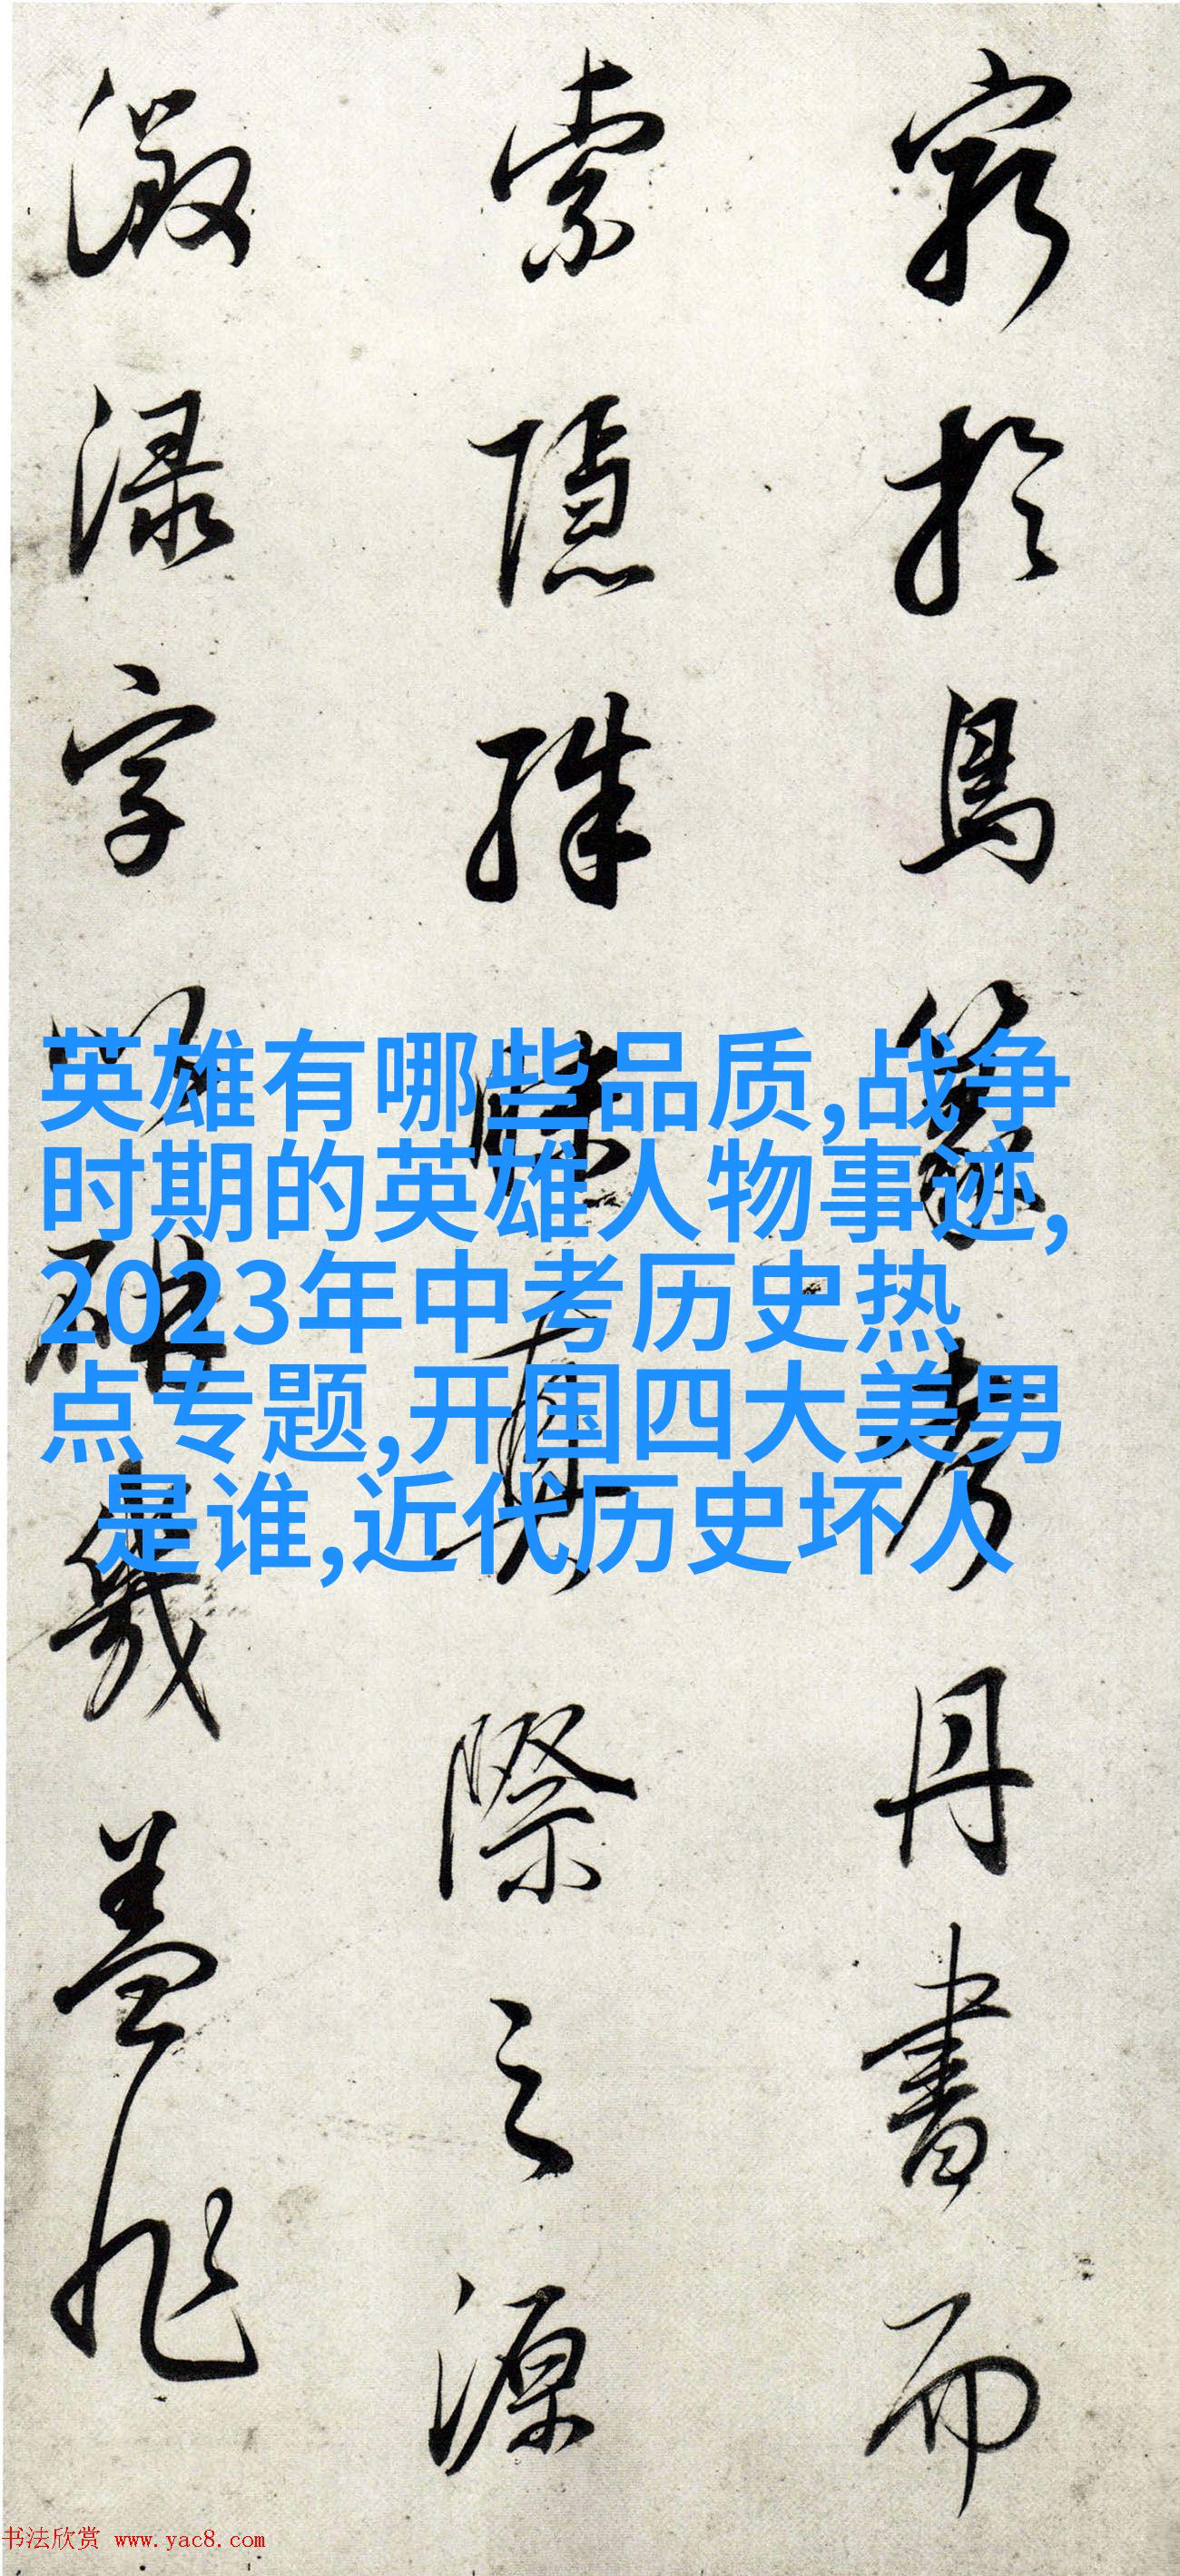 窮於鳥篆考丹書而
索隱殊真際之源
激淥字幾盖非
英雄有哪些品质,战争
时期的英雄人物事迹,
2023年中考历史热
点专题,开国四大美男
是谁,近代历史坏人
书法欣赏 www.yac8.com